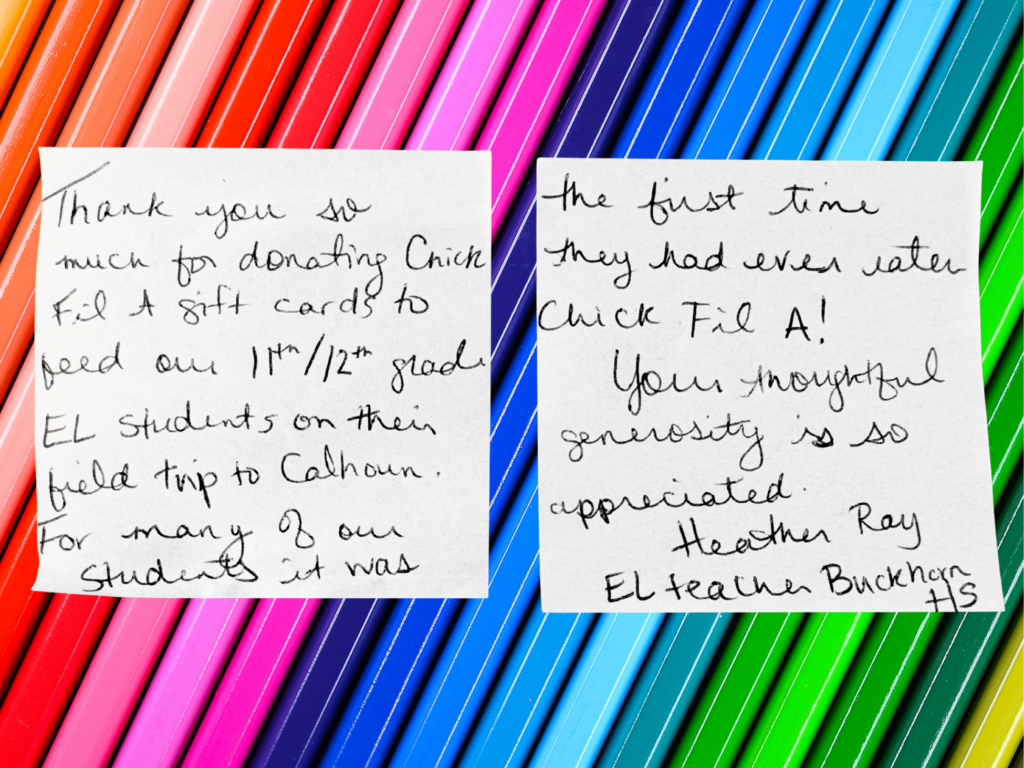 Thank you so
much for donating Chick
Fil A gift cards to
feed our 11th/12th grade
EL students on their
field trip to Calhoun.
For many of our
students it was
the first time
they had ever eaten
Chick Fil A!
Your thoughtful
generosity is so
appreciated.
Heather Ray
EL teacher Buckhorn
HS